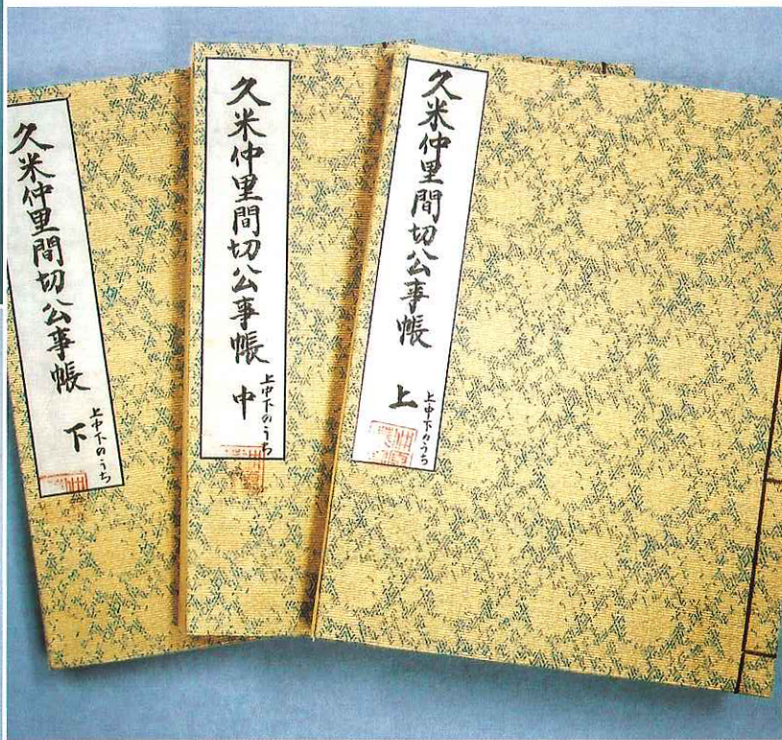 久米仲里間切公事帳 上
上中下のうち
久米仲里間切公事帳 中
上中下のうち
久米仲里間切公事帳 下
上中下のうち